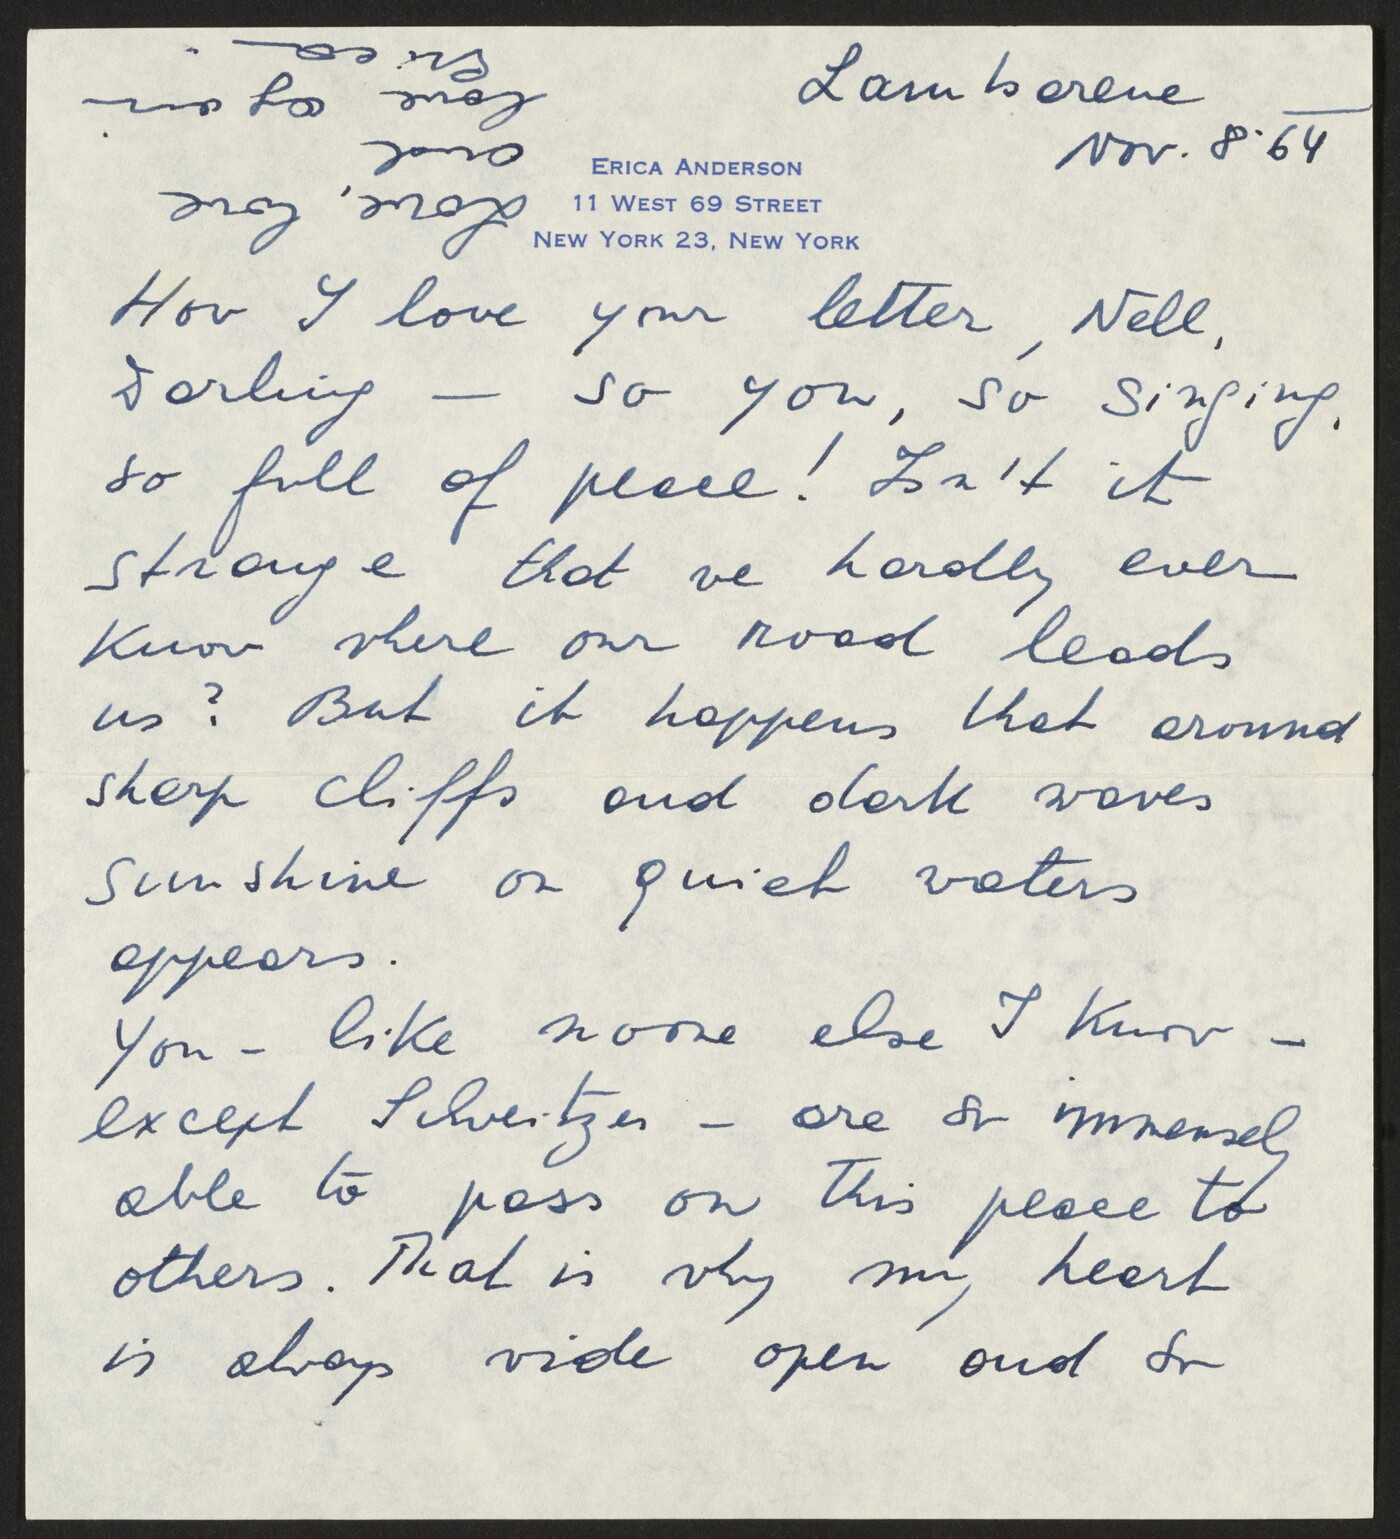 Lambarene
Nov. 8. 64
ERICA ANDERSON
11 WEST 69 STREET
NEW YORK 23, NEW YORK
How I love your letter, Nell,
Darling — so you, so singing,
so full of peace! Isn't it
strange that we hardly ever
know where our road leads
us? But it happens that around
sharp cliffs and dark waves
sunshine on quiet waters
appears.
You - like noone else I know -
except Schweitzer - are so immensely
able to pass on this peace to
others. That is why my heart
is always wide open and so
Love, love
and
love again
Erica